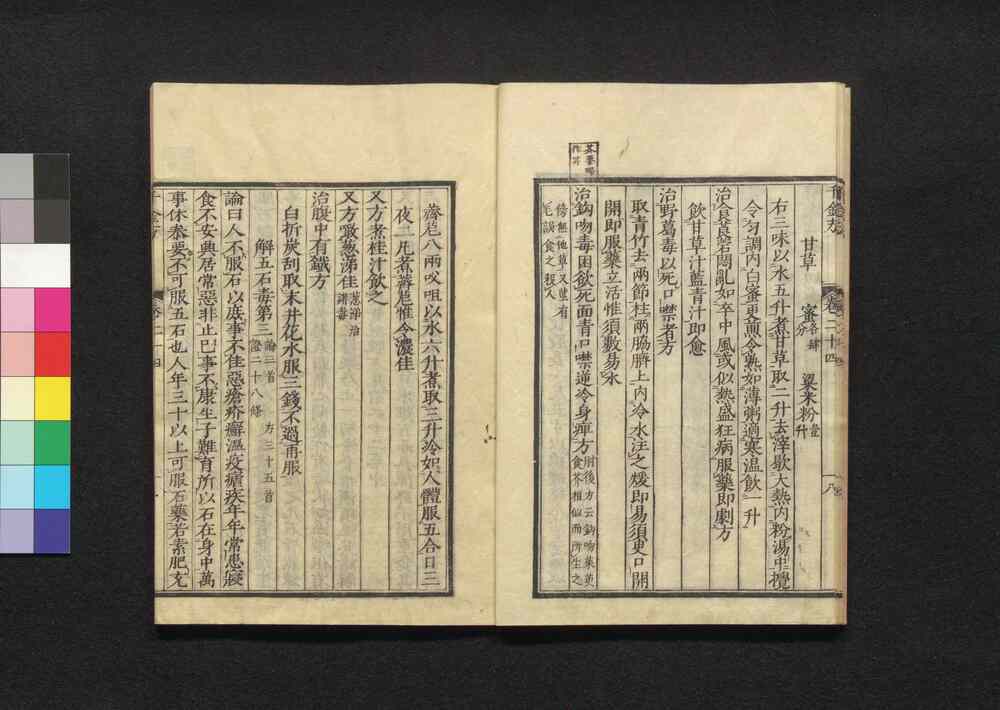 甘草 蜜各肆分 粱米粉壹升
右三味以水五升煮甘草取二升去滓歇大熱內粉湯中攪
令勻調內白蜜更煎令熟如薄粥適寒溫飲一升
治食莨菪悶亂如卒中風或似熱盛狂病服藥即劇方
飲甘草汁藍青汁即愈
治野葛毒以死口噤者方
取青竹去兩節柱兩脇臍上內冷水注之煖即易須臾口開
開即服藥立活惟須數易水
治鉤吻毒困欲死面青口噤逆冷身痺方肘後方云鉤吻葉與
食芥相似而所生之
傍無他草又莖有
毛誤食之殺人
卷二十四
八
薺苨八兩㕮咀以水六升煮取三升冷如人體服五合日三
夜二凡煮薺苨惟令濃佳
又方煮桂汁飲之
又方噉蔥涕佳蔥涕治
諸毒
治腹中有鐵方
白折炭刮取末井花水服三錢不過再服
解五石毒第三論三首 方三十五首
證二十八條
論曰人不服石以庶事不佳惡瘡疥癬溫疫瘧疾年年常患寢
食不安興居常惡非止己事不康生子難育所以石在身中萬
事休泰要不可服五石也人年三十以上可服石藥若素肥充